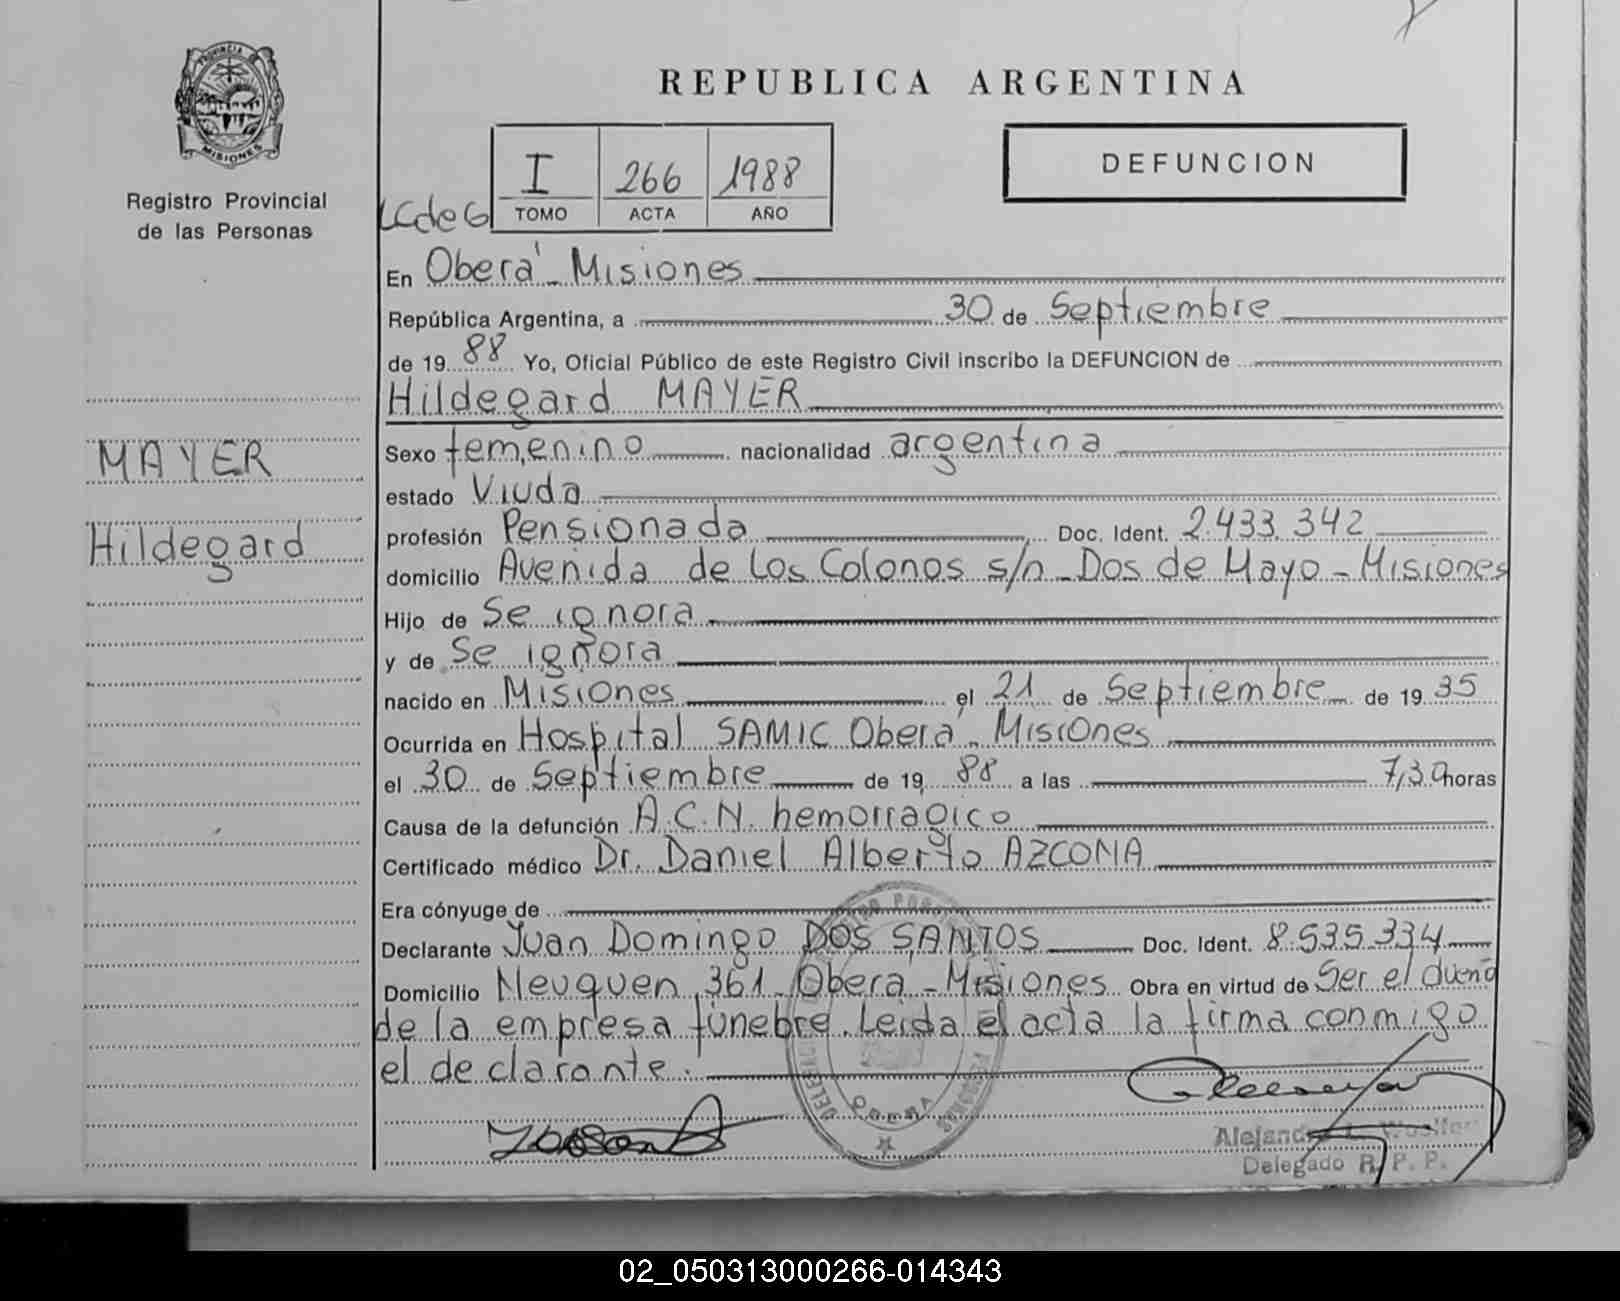 REPUBLICA ARGENTINA
PROVINCIA DE
MISIONES
Registro Provincial
de las Personas
I 266 1988
TOMO ACTA AÑO
DEFUNCION
LCdeG
En Oberá - Misiones
República Argentina, a 30 de Septiembre
de 19 88 Yo, Oficial Público de este Registro Civil inscribo la DEFUNCION de
Hildegard MAYER
MAYER
Hildegard
Sexo femenino nacionalidad argentina
estado Viuda
profesión Pensionada Doc. Ident. 2.433.342
domicilio Avenida de Los Colonos s/n - Dos de Mayo - Misiones
Hijo de Se ignora
y de Se ignora
nacido en Misiones el 21 de Septiembre de 19 35
Ocurrida en Hospital SAMIC Oberá - Misiones
el 30 de Septiembre de 19 88 a las 7,30 horas
Causa de la defunción A.C.N. hemorragico
Certificado médico Dr. Daniel Alberto AZCONA
Era cónyuge de
Declarante Juan Domingo DOS SANTOS Doc. Ident. 8.535.334
Domicilio Neuquen 361 - Oberá - Misiones Obra en virtud de Ser el dueño
de la empresa fúnebre. Leida el acta la firma conmigo
el declarante.
OBERA
Delegado R. P. P.
02_050313000266-014343